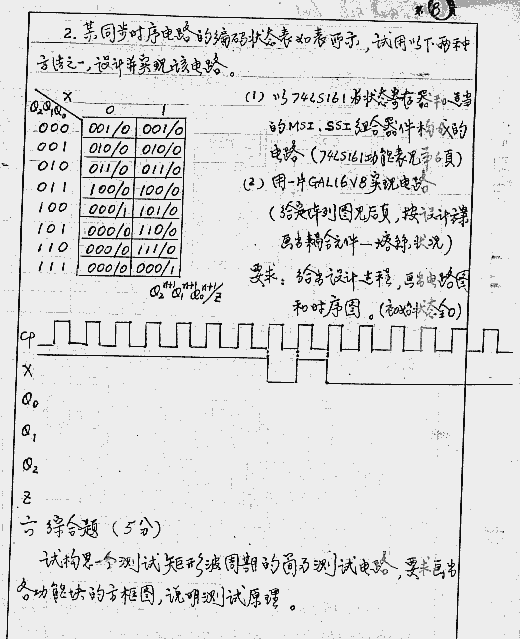 第8页
2. 某同步时序电路的编码状态表如表所示，试用以下两种
方法之一，设计并实现该电路。
X
Q₂Q₁Q₀ 0 1
000 001/0 001/0
001 010/0 010/0
010 011/0 011/0
011 100/0 100/0
100 000/1 101/0
101 000/0 110/0
110 000/0 111/0
111 000/0 000/1
Q₂ⁿ⁺¹Q₁ⁿ⁺¹Q₀ⁿ⁺¹/Z
(1) 以74LS161为状态寄存器和适当
的MSI、SSI组合器件构成的
电路（74LS161功能表见第6页）
(2) 用一片GAL16V8实现电路
（给定阵列图见后页，按设计结果
画出耦合元件—熔丝状况）
要求：给出设计过程，画出电路图
和时序图。（初始状态全0）
CP
X
Q₀
Q₁
Q₂
Z
六 综合题（5分）
试构思一个测试矩形波周期的简易测试电路，要求画出
各功能块的方框图，说明测试原理。